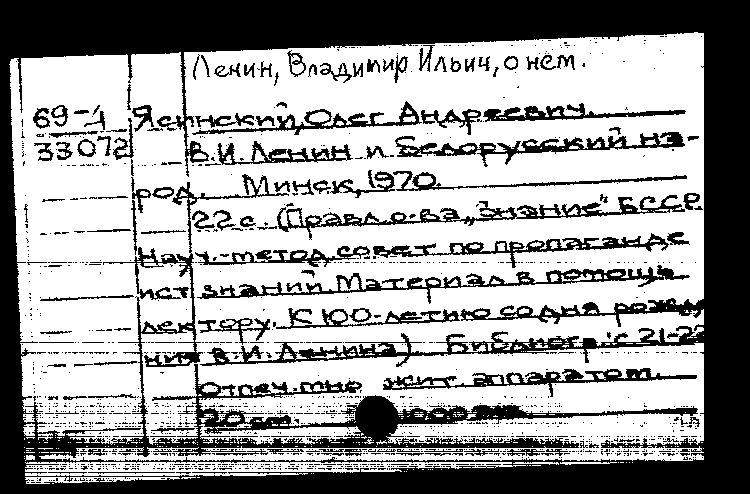 Ленин, Владимир Ильич, о нем.
69-4 Ясинский, Олег Андреевич.
33072 В.И. Ленин и Белорусский на-
род. Минск, 1970.
22 с. (Правл. о-ва „Знание" БССР.
Науч.-метод. совет по пропаганде
ист. знаний. Материал в помощь
лектору. К 100-летию со дня рожде-
ния В.И. Ленина) Библиогр.: с. 21-22
Отпеч. мно жит. аппаратом.
20 см. 1000 экз.